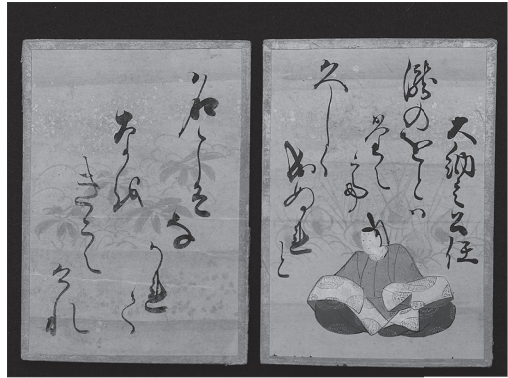 大納言公任
瀧のをとハ
たえて
久しく
成ぬれと
名こそな
かれて
なを
きこえ
けれ